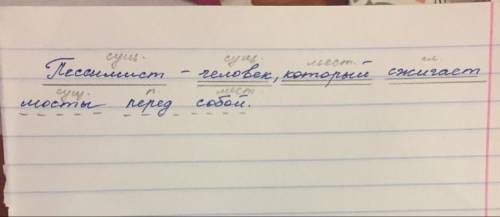 сущ. сущ. мест. гл.
Пессимист - человек, который сжигает
сущ. п. мест.
мосты перед собой.